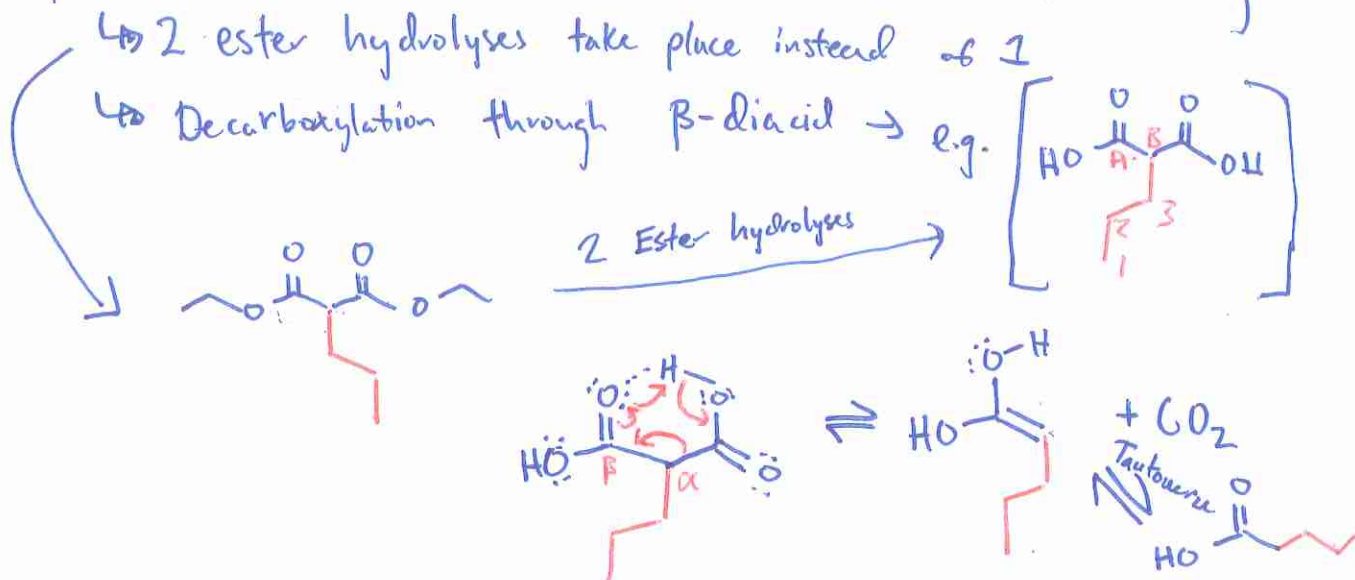 ↳ 2 ester hydrolyses take place instead of 1
↳ Decarboxylation through β-diacid → e.g.
O O
HO A B OH
2 3
1
2 Ester hydrolyses
O O
O O
H
O O
HO β α O
O-H
HO
+ CO2
Tautomerize
O
HO